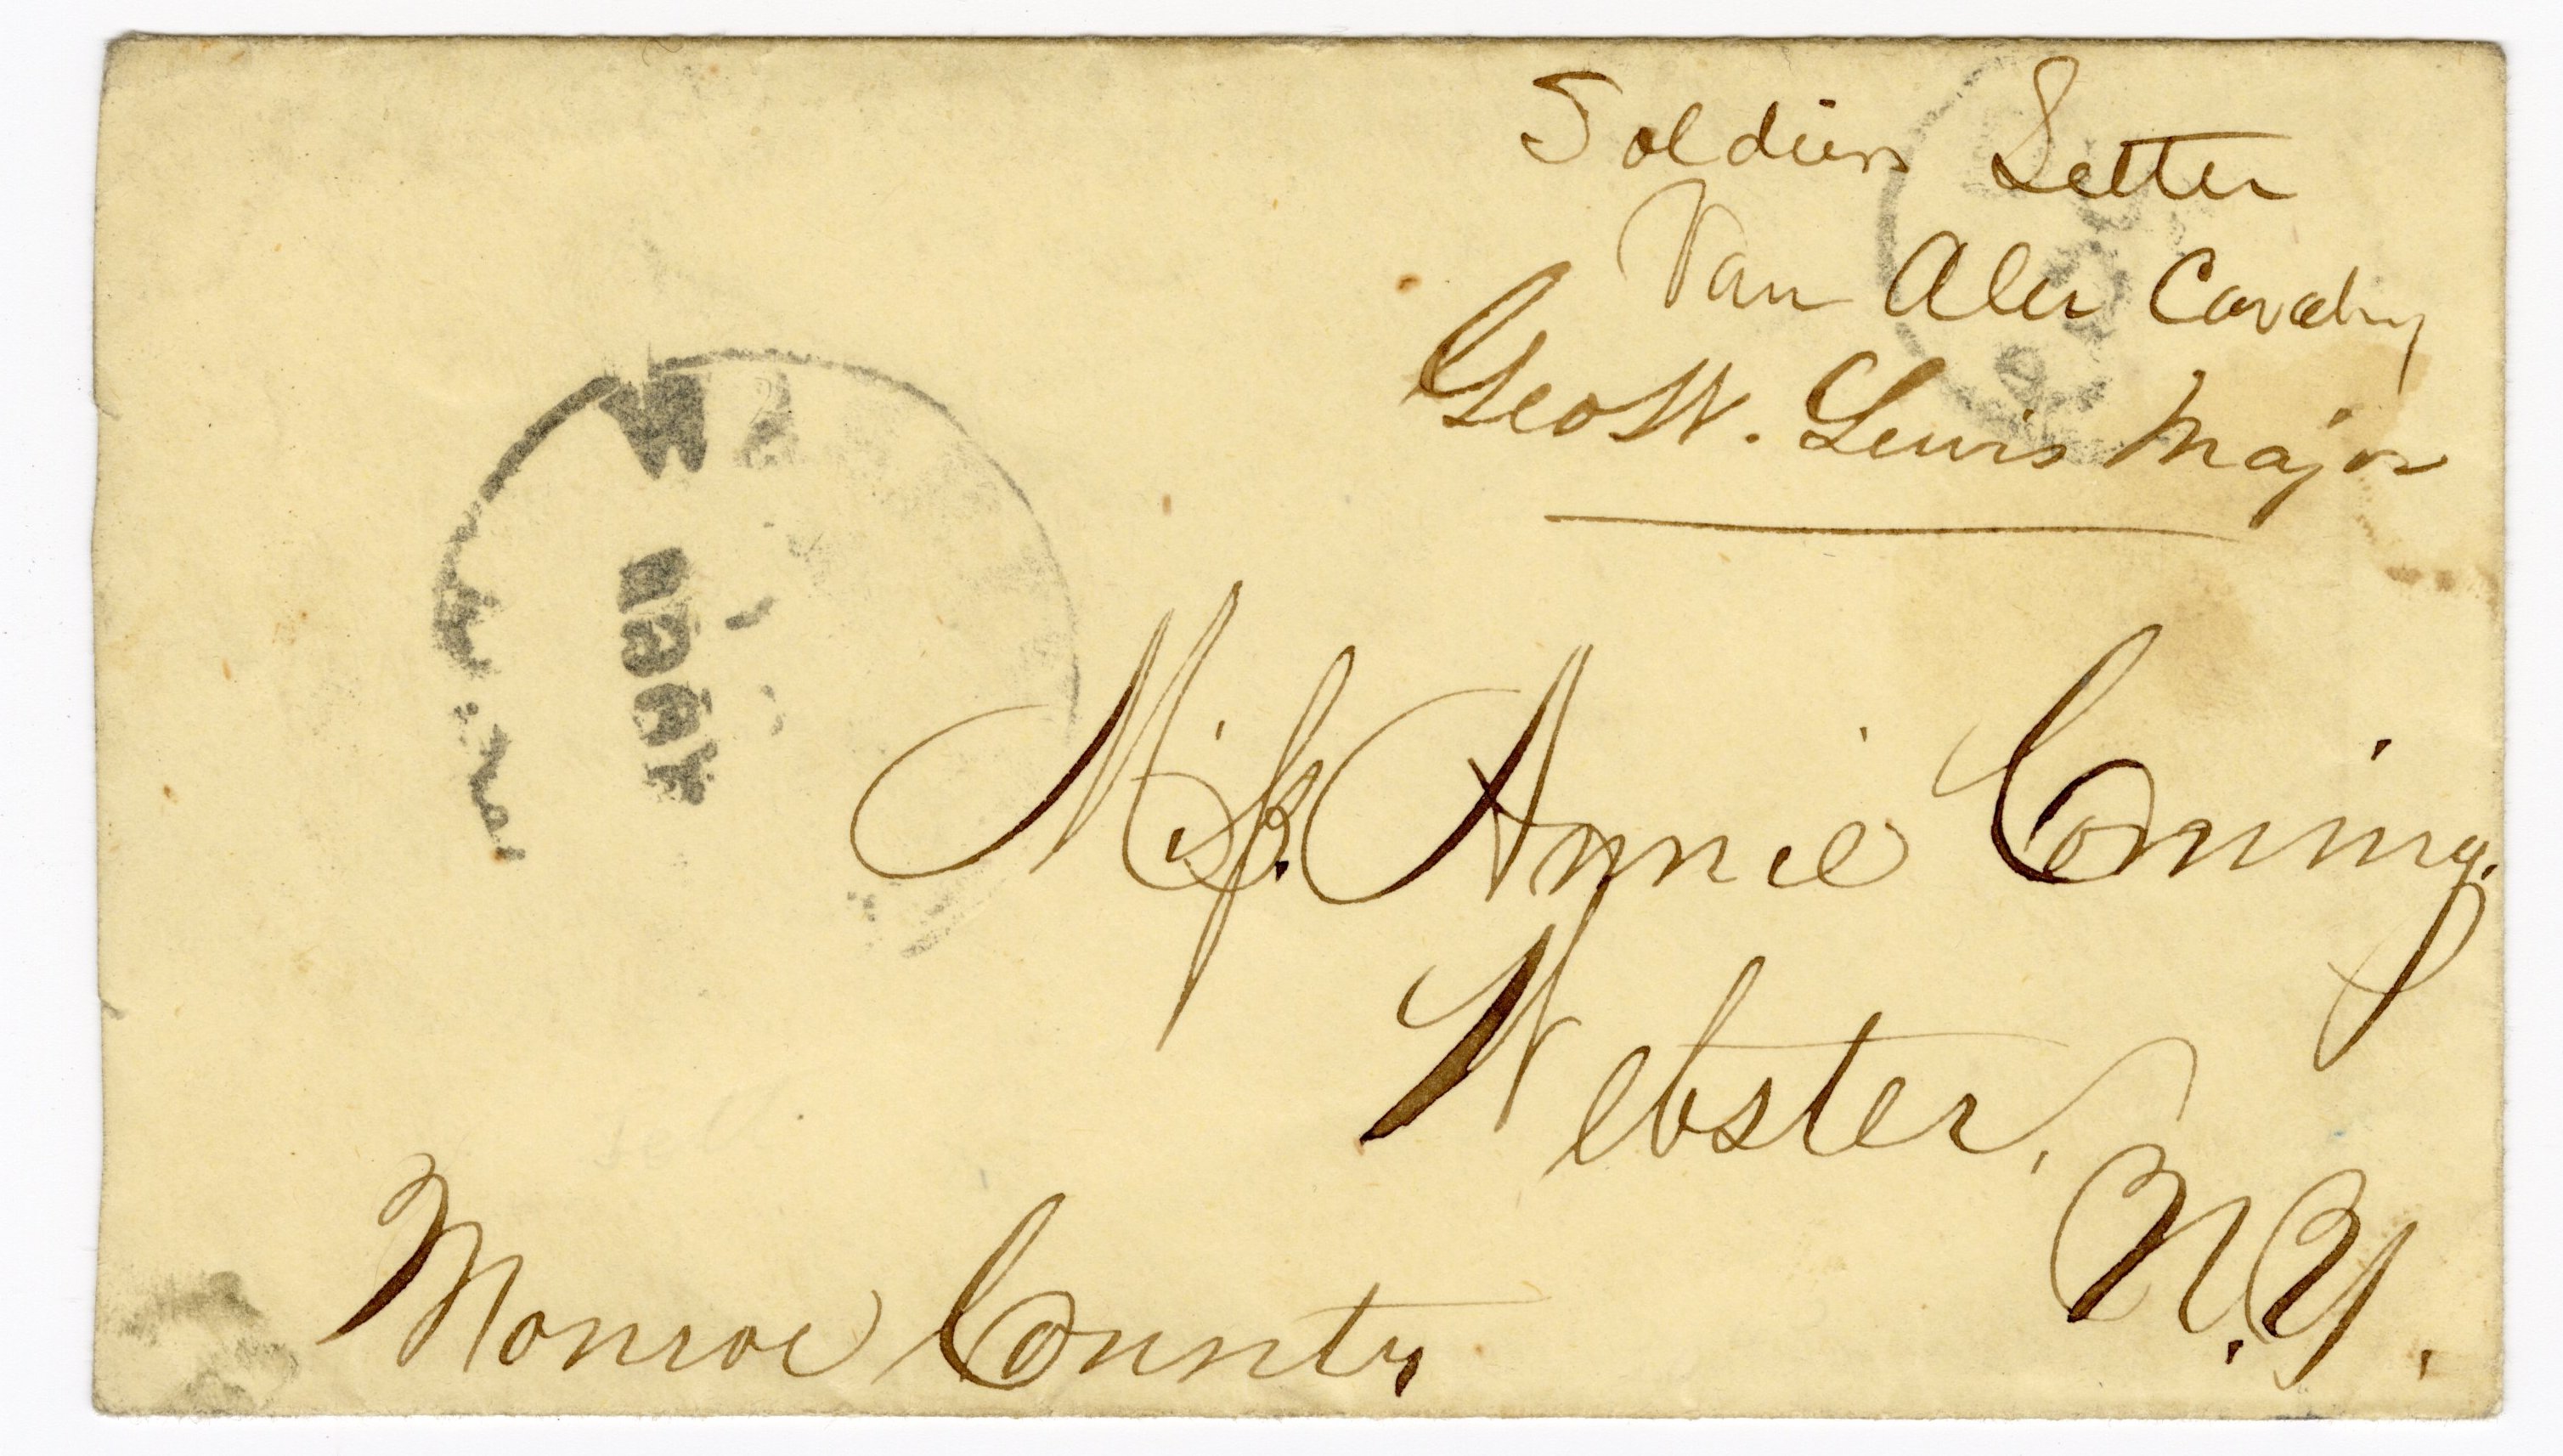 Soldiers Letter
Van Aler Cavalry
Geo W. Lewis Major
Miss. Annie Corning.
Webster,
N.Y.
Monroe County